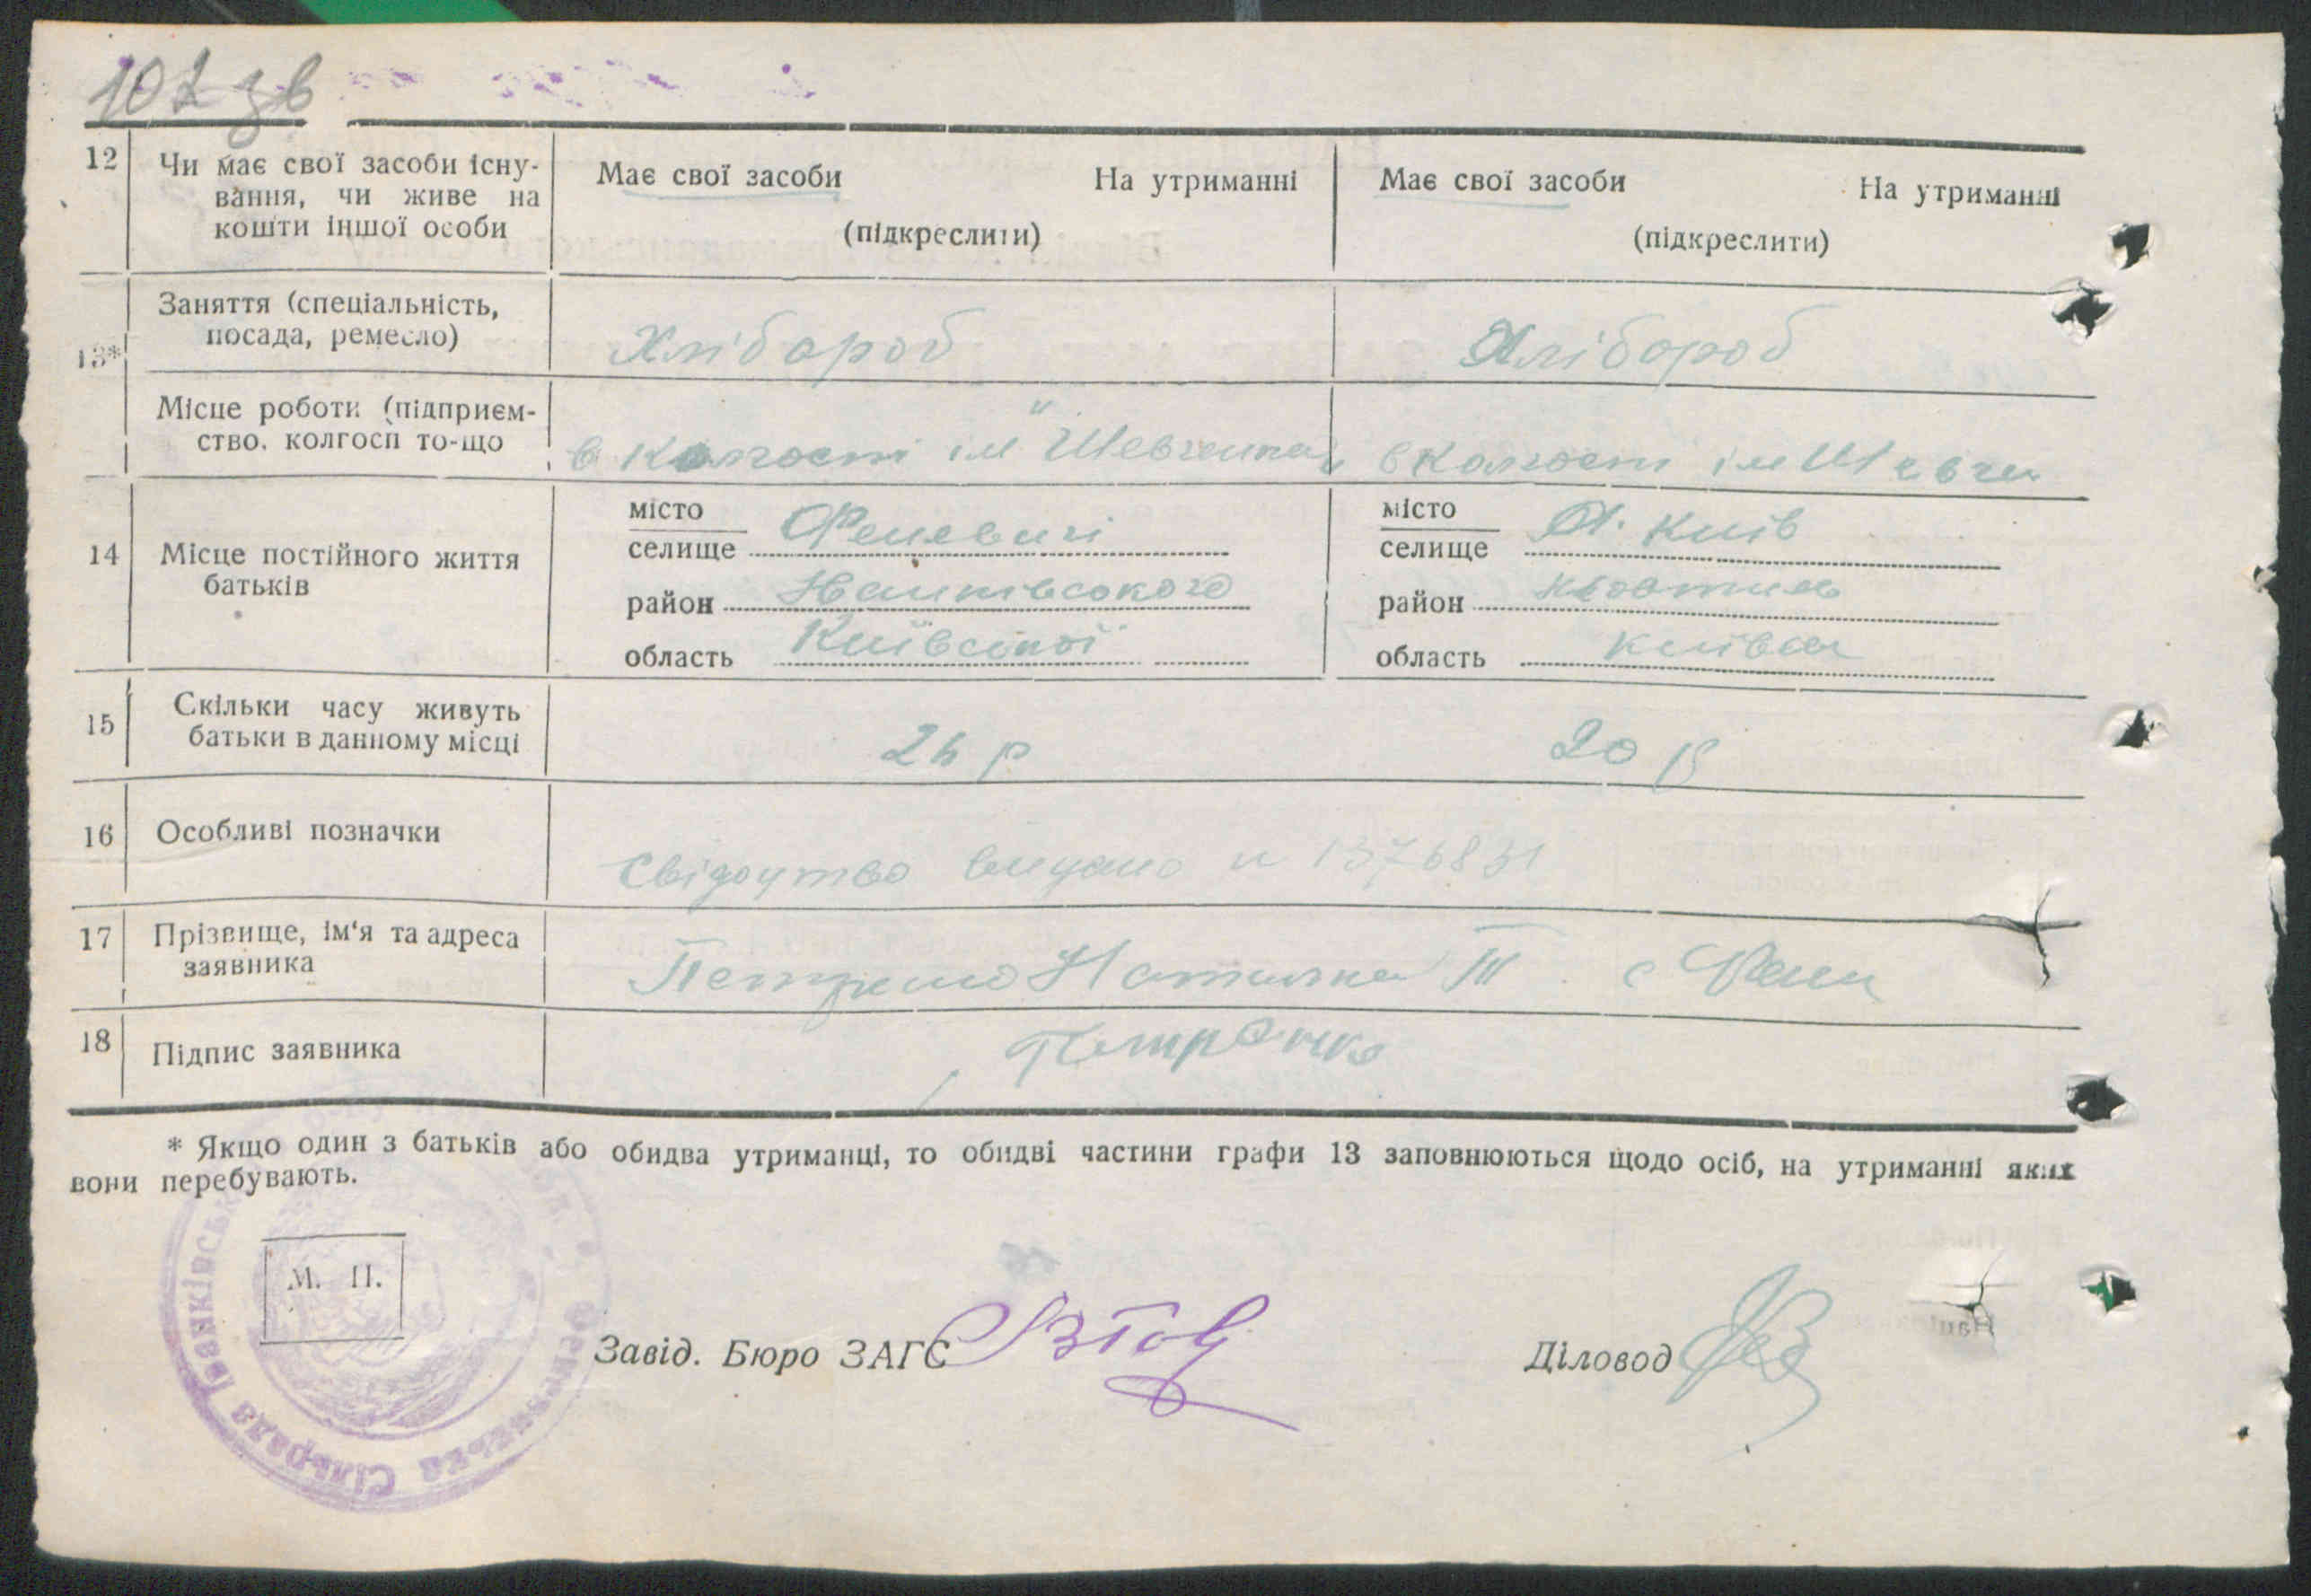 102 зв
12 Чи має свої засоби існу-
вання, чи живе на
кошти іншої особи
Має свої засоби На утриманні
(підкреслити)
Має свої засоби На утриманні
(підкреслити)
13*
Заняття (спеціальність,
посада, ремесло)
Хлібороб
Хлібороб
Місце роботи (підприєм-
ство. колгосп то-що
в колгоспі ім "Шевченка
в колгоспі ім Шевчен
14 Місце постійного життя
батьків
місто
селище Феневичі
район
область Київської
місто
селище Київ
район
область Київськ
15 Скільки часу живуть
батьки в данному місці
р
20 р
16 Особливі позначки
Свідоцтво видано н 1376831
17 Прізвище, ім'я та адреса
заявника
Наталка с Фен
18 Підпис заявника
* Якщо один з батьків або обидва утриманці, то обидві частини графи 13 заповнюються щодо осіб, на утриманні яких
вони перебувають.
М. П.
Завід. Бюро ЗАГС
Діловод
Феневицька Сільрада Іванківськ